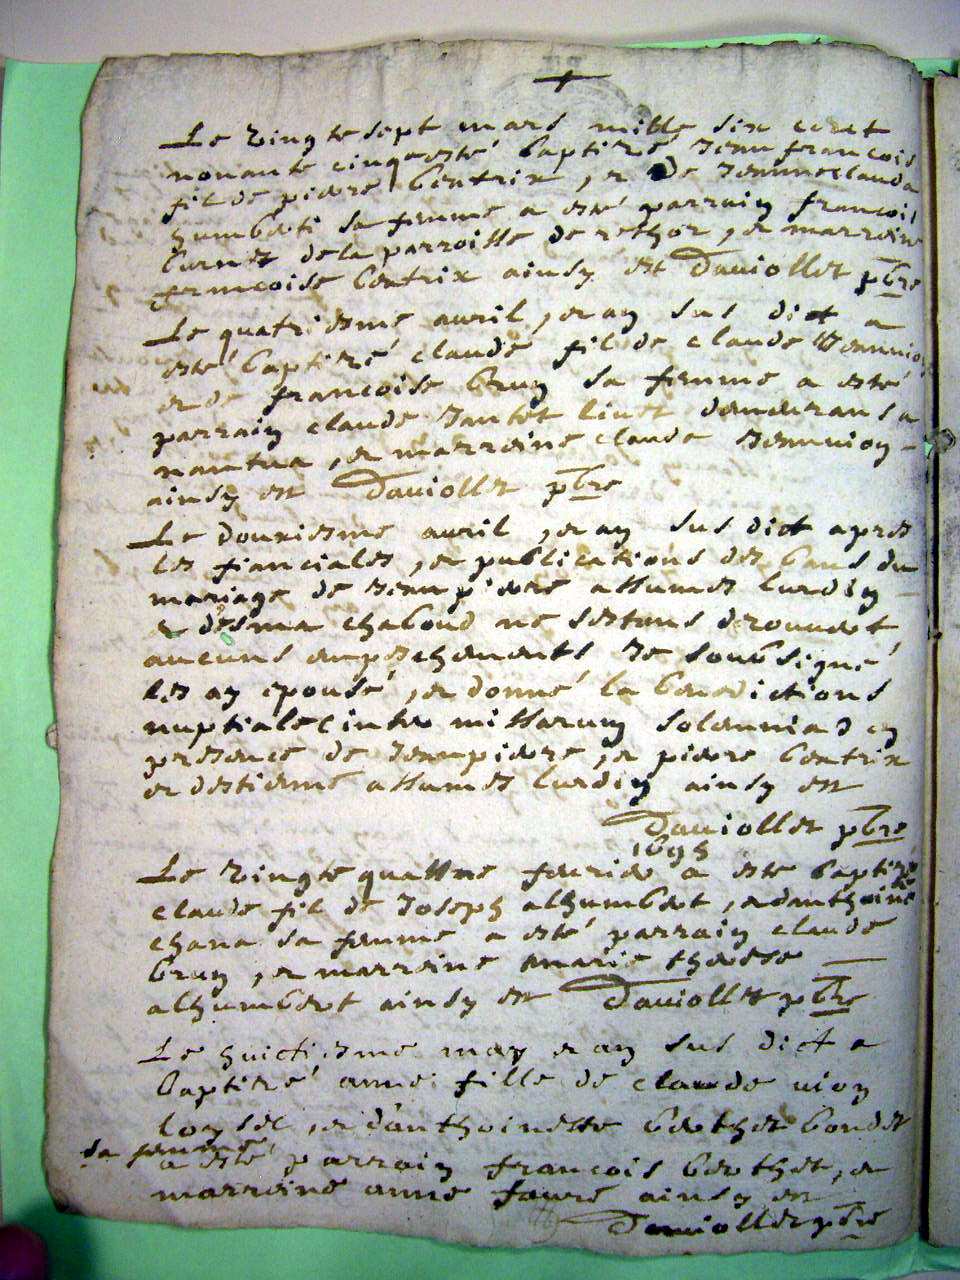 Le vingte sept mars mille six cent
nonante cinq esté baptizé Jean francois
fil de pierre bentrix, e de Jeanne clauda
humbert sa femme a esté parrain francois
carnet de la parroisse de rethor, e marraine
francoise bentrix ainsy est Daviollet pbre
Le quatriesme avril, e an sus dict a
esté baptizé claude fil de claude Jennvion
e de francoise brun sa femme a esté
parrain claude Jantet demeuran a
nantua, e marraine claude Jennvion
ainsy est Daviollet pbre
Le douxiesme avril, e an sus dict apres
les fianciales, e publications des bans du
mariage de Jean pierre allumet lurdin
e desma chaboud ne sestans trouvet
aucuns empechements Je soubsigné
les ay epousé, e donné la benedictions
nuptiale intra missarum solemnia en
presence de Jean pierre, e pierre bentrix
e destienne allumet lurdin ainsy est
Daviollet pbre
1695
Le vingte quattre fevrier a este baptizé
claude fil de Joseph alhumbert, e danthoine
chana sa femme a esté parrain claude
brun, e marraine marie therese
alhumbert ainsy est Daviollet pbre
Le huictiesme may e an sus dict a
baptizé anne fille de claude vion
loysel, e danthoinette berthet bondet
sa femme
a esté parrain francois berthet, e
marraine anne favre ainsy est
Daviollet pbre